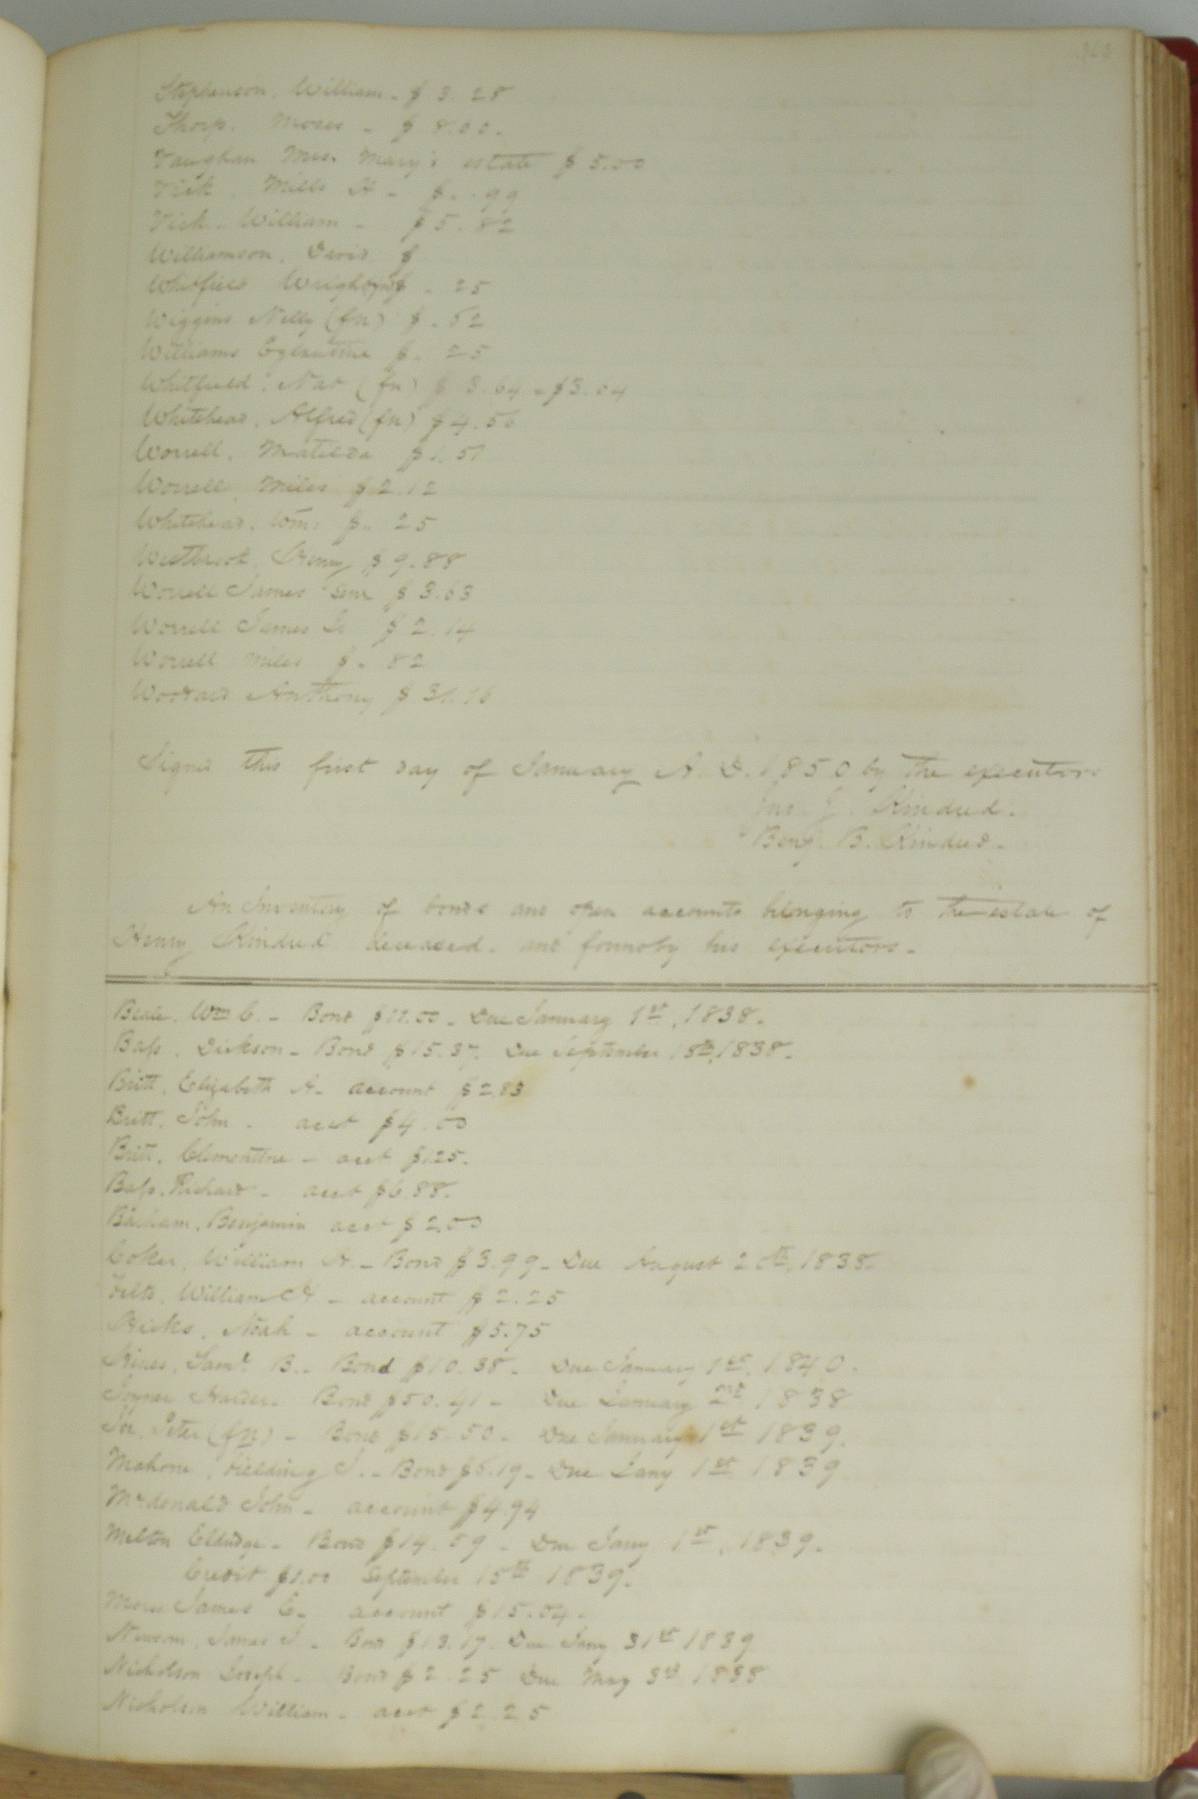 Stephenson, William - $ 3.28
Thorp. Moses - $ 8.00.
Vaughan Mrs. Mary's estate $ 5.00
Vick. Mills H - $ - .99
Vick. William - $5.82
Williamson, David $
Whitfield Wright $ - 25
Wiggins Nelly (fn) $ - 62
Williams $ - 25
Whitfield. Nat (fn) $ 3.64 - $3.04
Whitehead, Alfred (fn) $4.56
Worrell. Matilda $1.51
Worrell, Miles $2.12
Whitehead, Wm. $ - 25
Westbrook, Henry $9.88
Worrell James Senr $ 3.63
Worrell James Jr $ 2.14
Worrell Miles $ - 82
Woodard Anthony $ 31.16
Signed this first day of January A.D. 1850 by the executors
Jno. J. Kindred.
Benj. B. Kindred.
An Inventory of bonds and open accounts belonging to the estate of
Henry Kindred deceased. and found by his executors.
Beale, Wm C. - Bond $11.00 - Due January 1st, 1838.
Bass, Dickson - Bond $15.37. Due September 18th, 1838.
Britt, Elizabeth A. account $2.83
Britt, John - acct $4.00
Britt, Clementine - acct $1.25.
Bass, Richard - acct $6.88.
Barham, Benjamin acct $2.00
Coker, William A. - Bond $3.99 - Due August 20th, 1838
Felts, William H - account $2.25
Hicks, Noah - account $5.75
Hines, Saml B. - Bond $10.38 - Due January 1st, 1840.
Joyner - Bond $50.41 - Due January 2nd 1838
Peter (fn) - Bond $15.50 - Due January 1st 1839.
Mahone, Fielding J. - Bond $6.19 - Due Jany 1st 1839
McDonald John - account $4.94
Melton Eldridge - Bond $14.59 - Due Jany 1st, 1839.
Credit $1.00 September 15th 1839.
Moore James C. account $15.04.
Newsom, James J. - Bond $13.17. Due Jany 31st 1839
Nicholson Joseph - Bond $2.25 Due May 3rd 1838
Nicholson William - acct $2.25